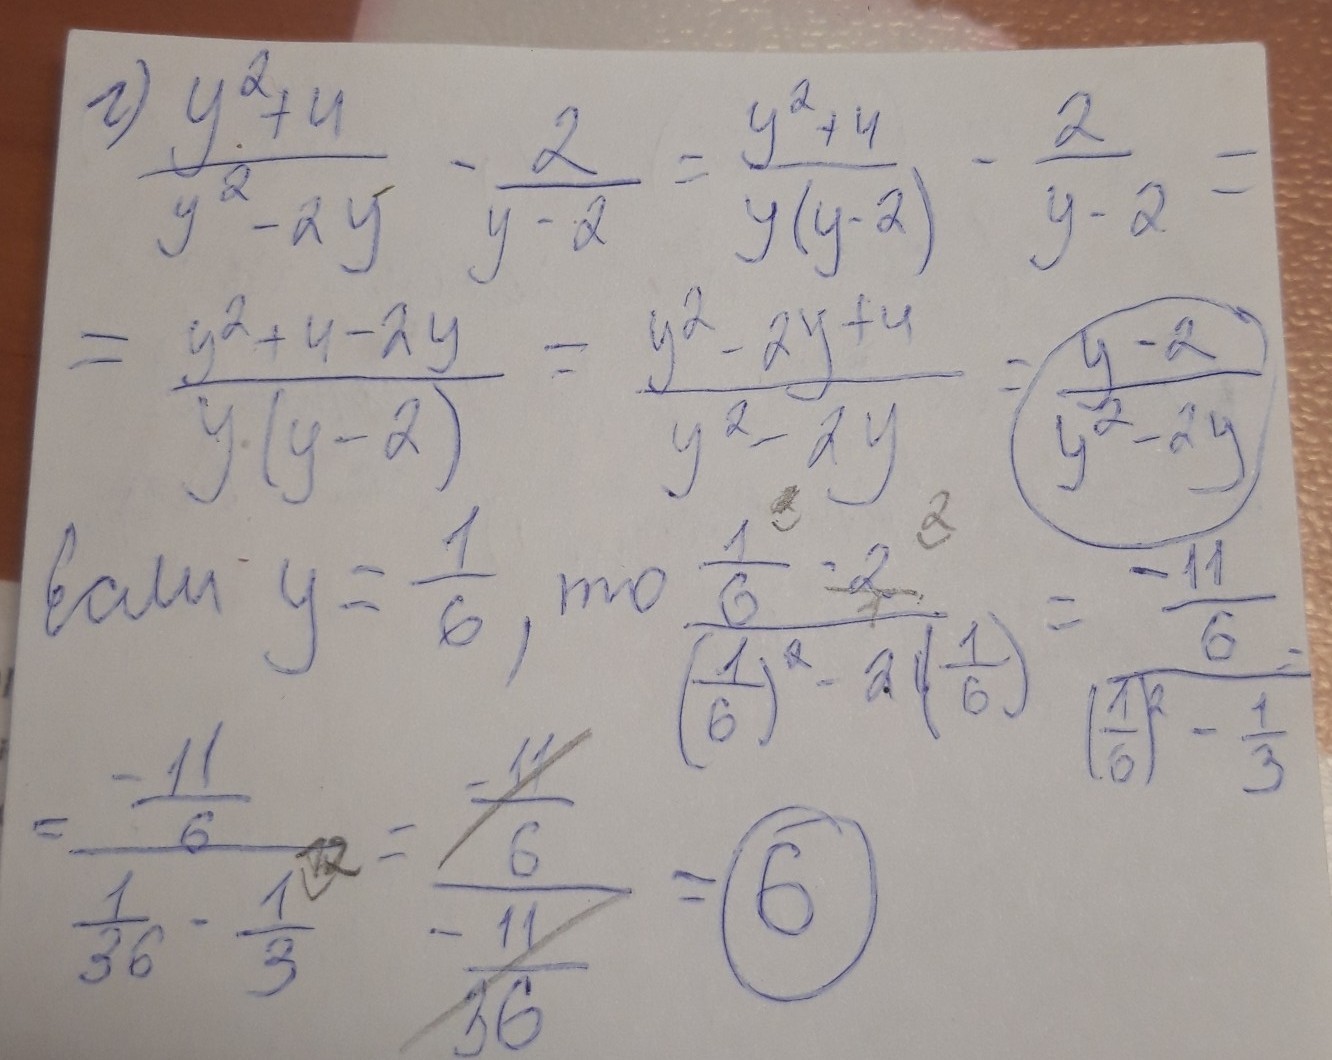 г) (y²+4)/(y²-2y) - 2/(y-2) = (y²+4)/(y(y-2)) - 2/(y-2) =
= (y²+4-2y)/(y(y-2)) = (y²-2y+4)/(y²-2y) = (y-2)/(y²-2y)
если y = 1/6, то (1/6 - 2)/((1/6)² - 2(1/6)) = (-11/6)/((1/6)² - 1/3) =
= (-11/6)/(1/36 - 1/3) = (-11/6)/(-11/36) = 6